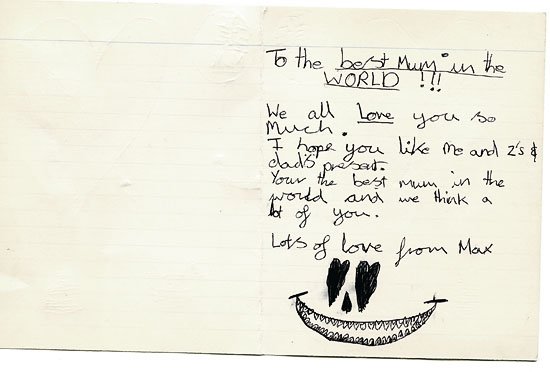 To the best Mum in the
WORLD !!!
We all Love you so
Much.
I hope you like me and z's &
dad's present.
Your the best mum in the
world and we think a
lot of you.
Lots of love from Max